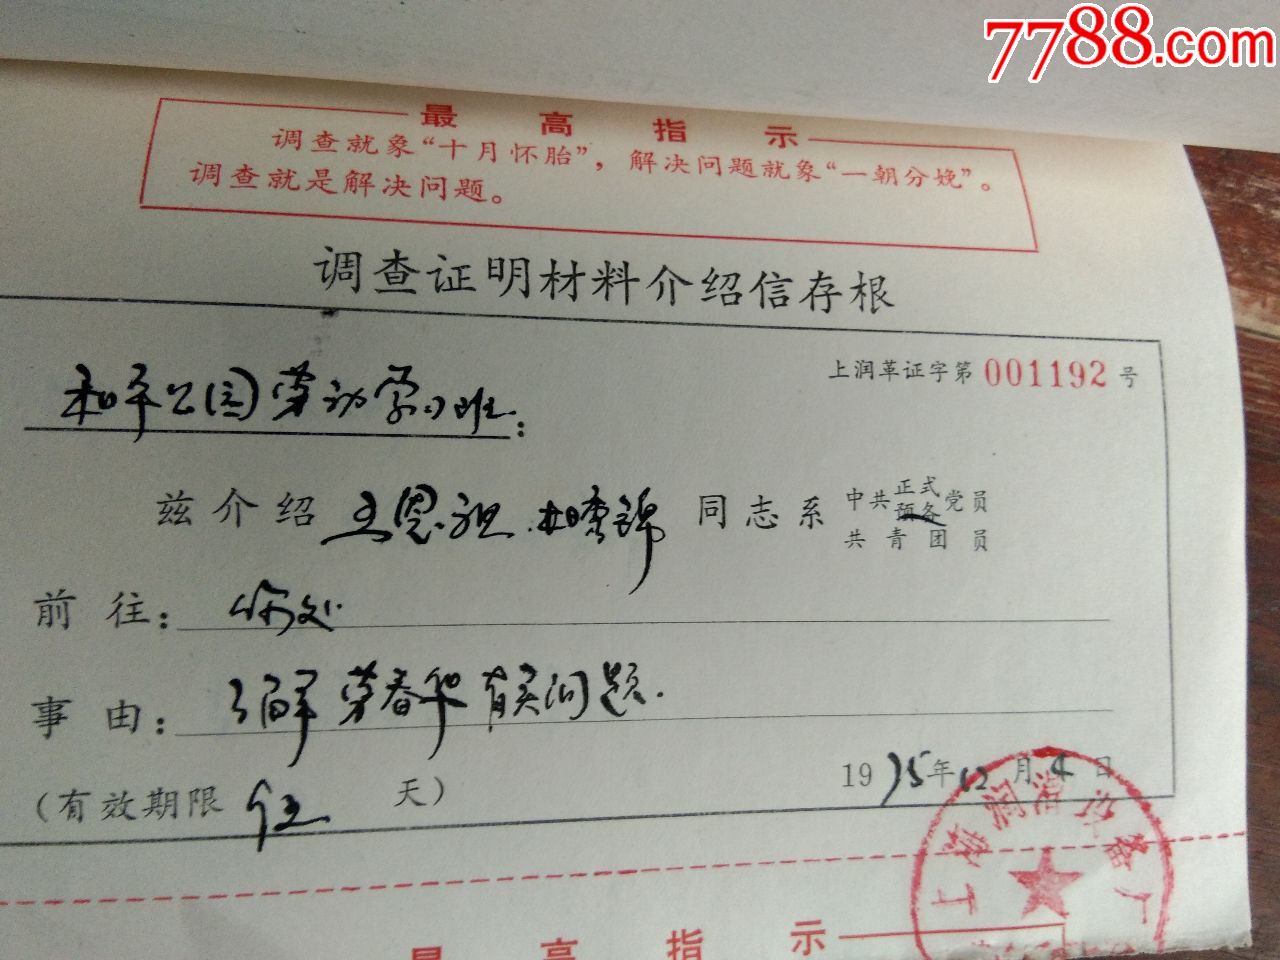 7788.com
最高指示
调查就象“十月怀胎”，解决问题就象“一朝分娩”。
调查就是解决问题。
调查证明材料介绍信存根
上润革证字第 001192 号
和平公园劳动学习班：
兹介绍 王恩祖. 同志系 中共正式预备党员 共青团员
前往：你处
事由：了解劳春华有关问题.
（有效期限 天）
1975年12月4日
上海润滑设备厂
最高指示